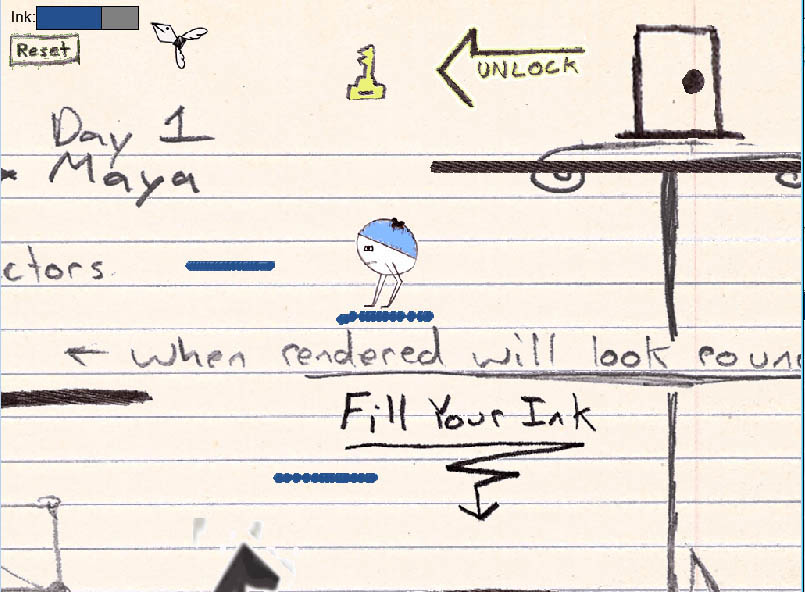 Ink:
Reset
UNLOCK
Day 1
Maya
ctors.
← When rendered will look roun
Fill Your Ink